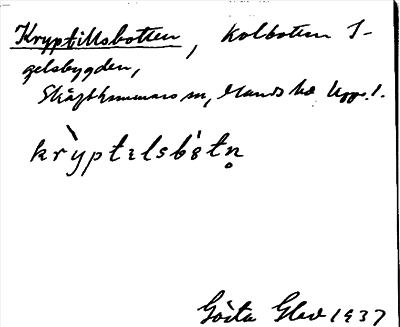 Kryptillsbotten, kolbotten I-
gelsbygden,
Skäfthammars sn, Olands hd Upps.l.
krỳptɩlsbòtn̥
Gösta Gled 1937